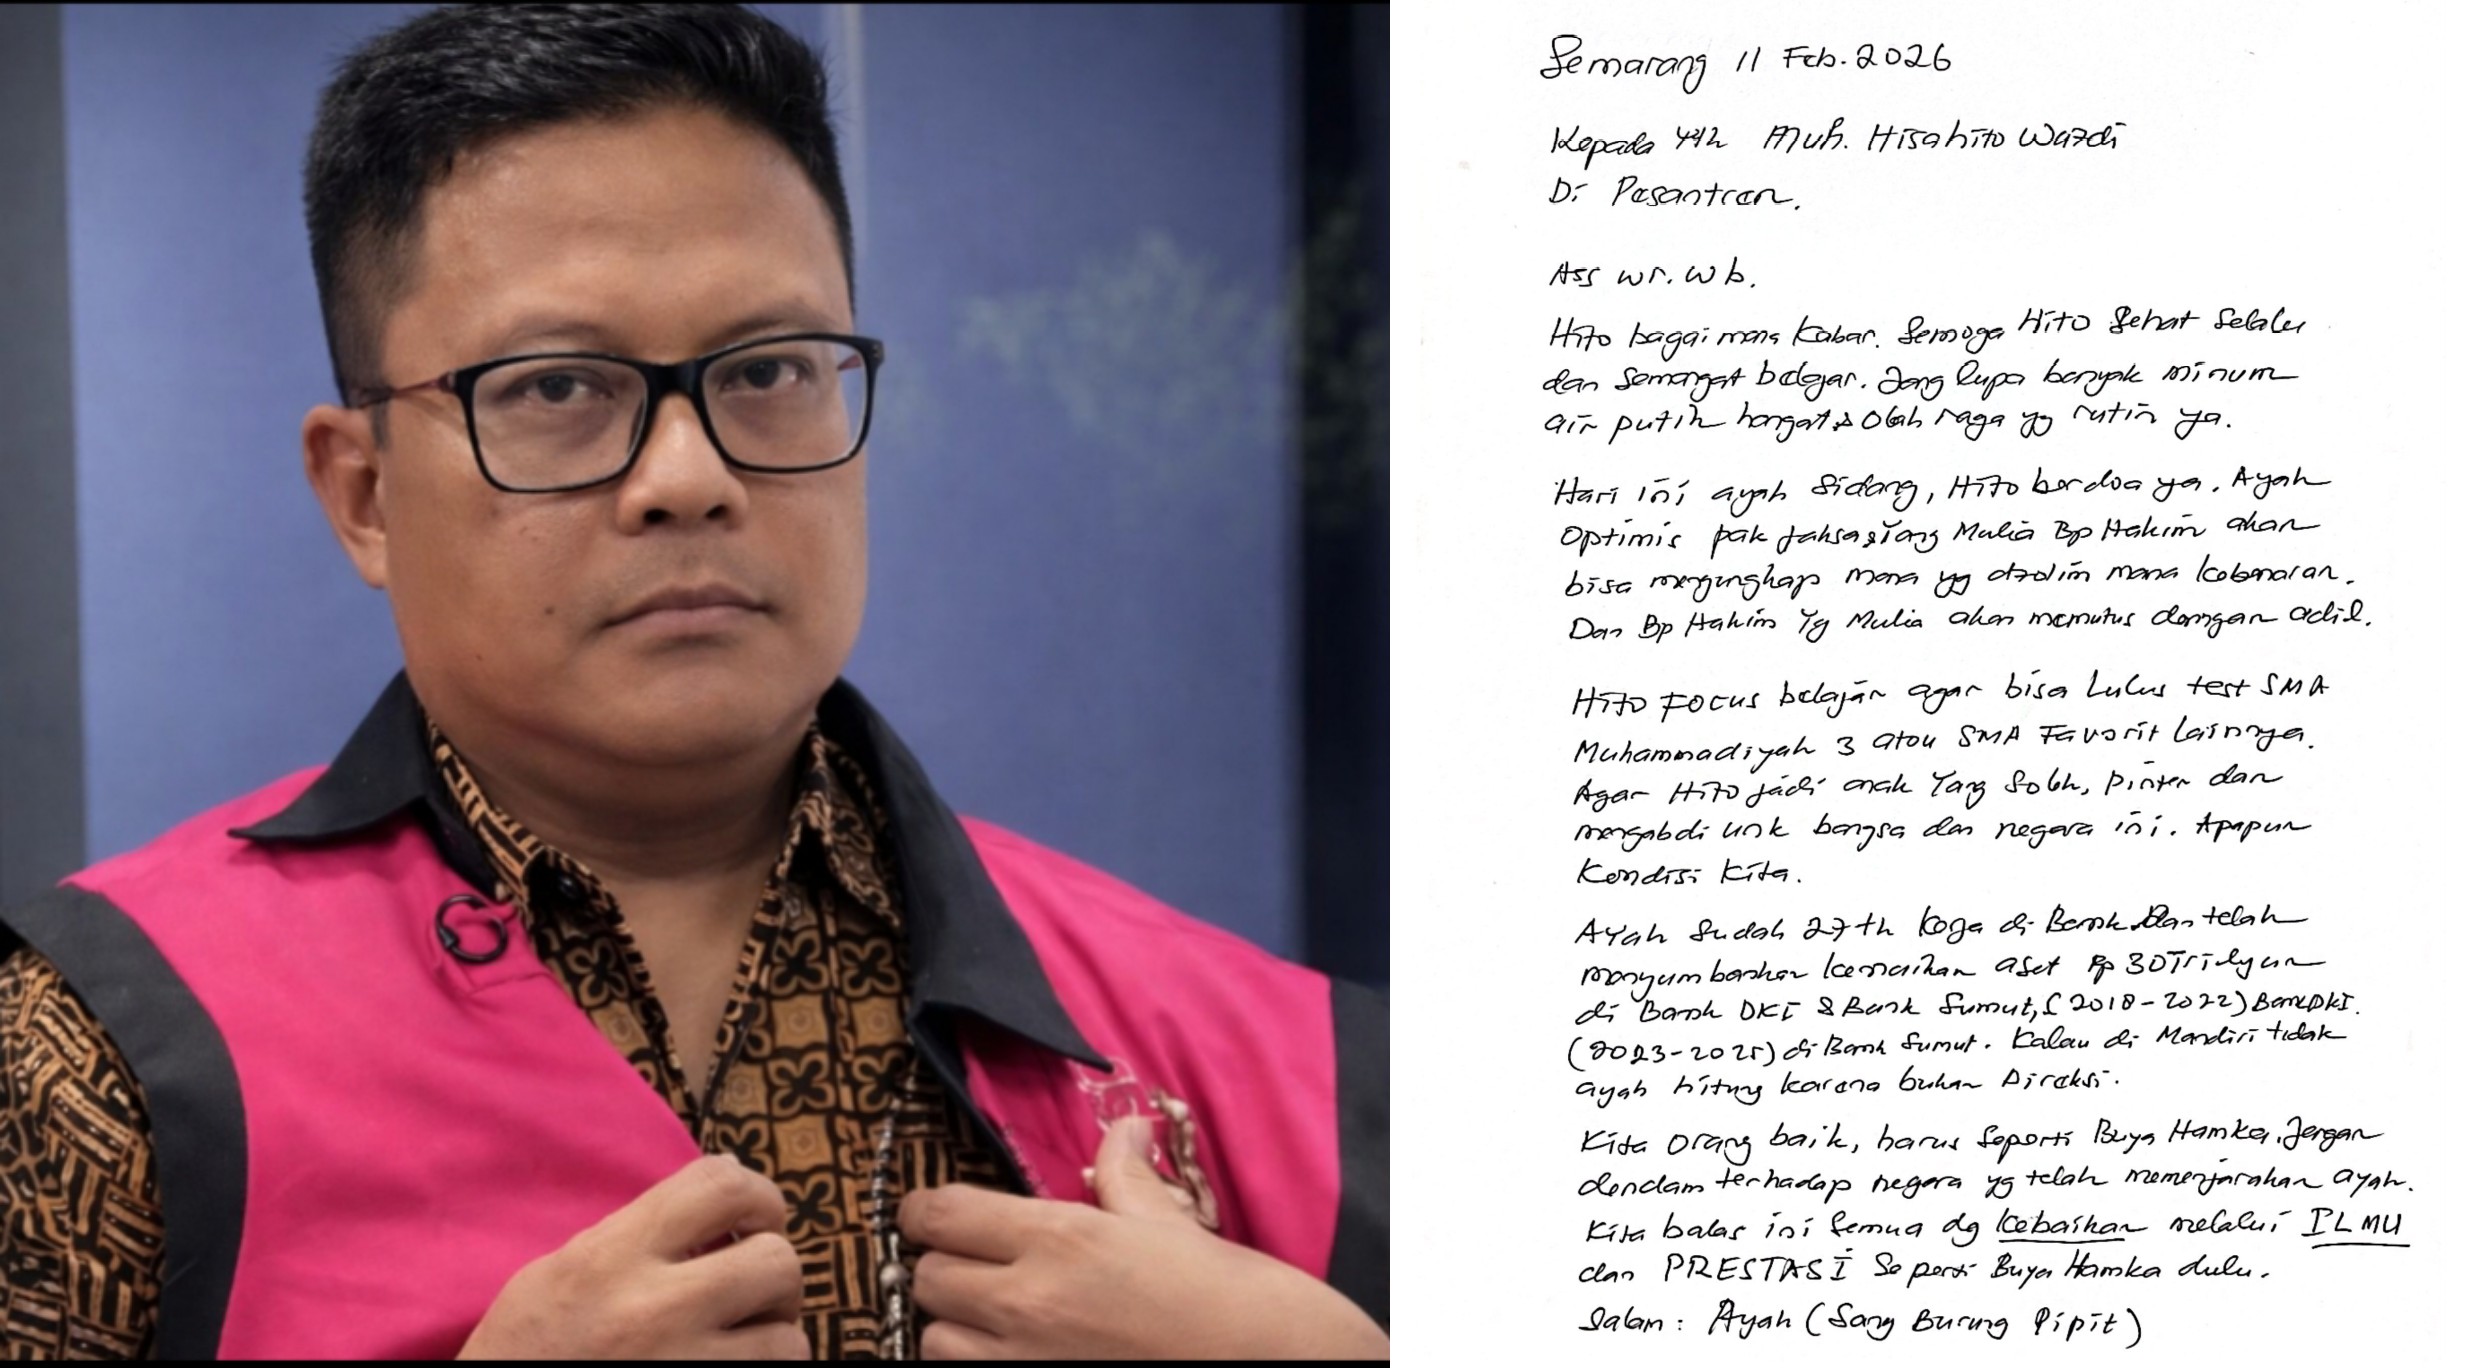 Semarang 11 Feb. 2026
Kepada Yth Muh. Hisahito Wazdi
Di Pesantren.
Ass wr. wb.
Hito bagaimana kabar. Semoga Hito Sehat Selalu
dan Semangat belajar. Jang lupa banyak minum
air putih hangat & Olah raga yg rutin ya.
Hari ini ayah Sidang, Hito berdoa ya. Ayah
Optimis pak Jaksa & Yang Mulia Bp Hakim akan
bisa mengungkap mana yg dzolim mana kebenaran.
Dan Bp Hakim Yg Mulia akan memutus dengan adil.
Hito Focus belajar agar bisa Lulus test SMA
Muhammadiyah 3 atau SMA Favorit Lainnya.
Agar Hito jadi anak Yang Soleh, pinter dan
mengabdi untk bangsa dan negara ini. Apapun
Kondisi Kita.
Ayah Sudah 27 th Kerja di Bank. Dan telah
menyumbankan kenaikan aset Rp 30 Trilyun
di Bank DKI & Bank Sumut, (2018-2022) Bank DKI.
(2023-2025) di Bank Sumut. Kalau di Mandiri tidak
ayah hitung karena bukan Direksi.
Kita Orang baik, harus Seperti Buya Hamka. Jangan
dendam terhadap negara yg telah memenjarakan ayah.
Kita balas ini Semua dg kebaikan melalui ILMU
dan PRESTASI Seperti Buya Hamka dulu.
Salam : Ayah (Sang Burung Pipit)